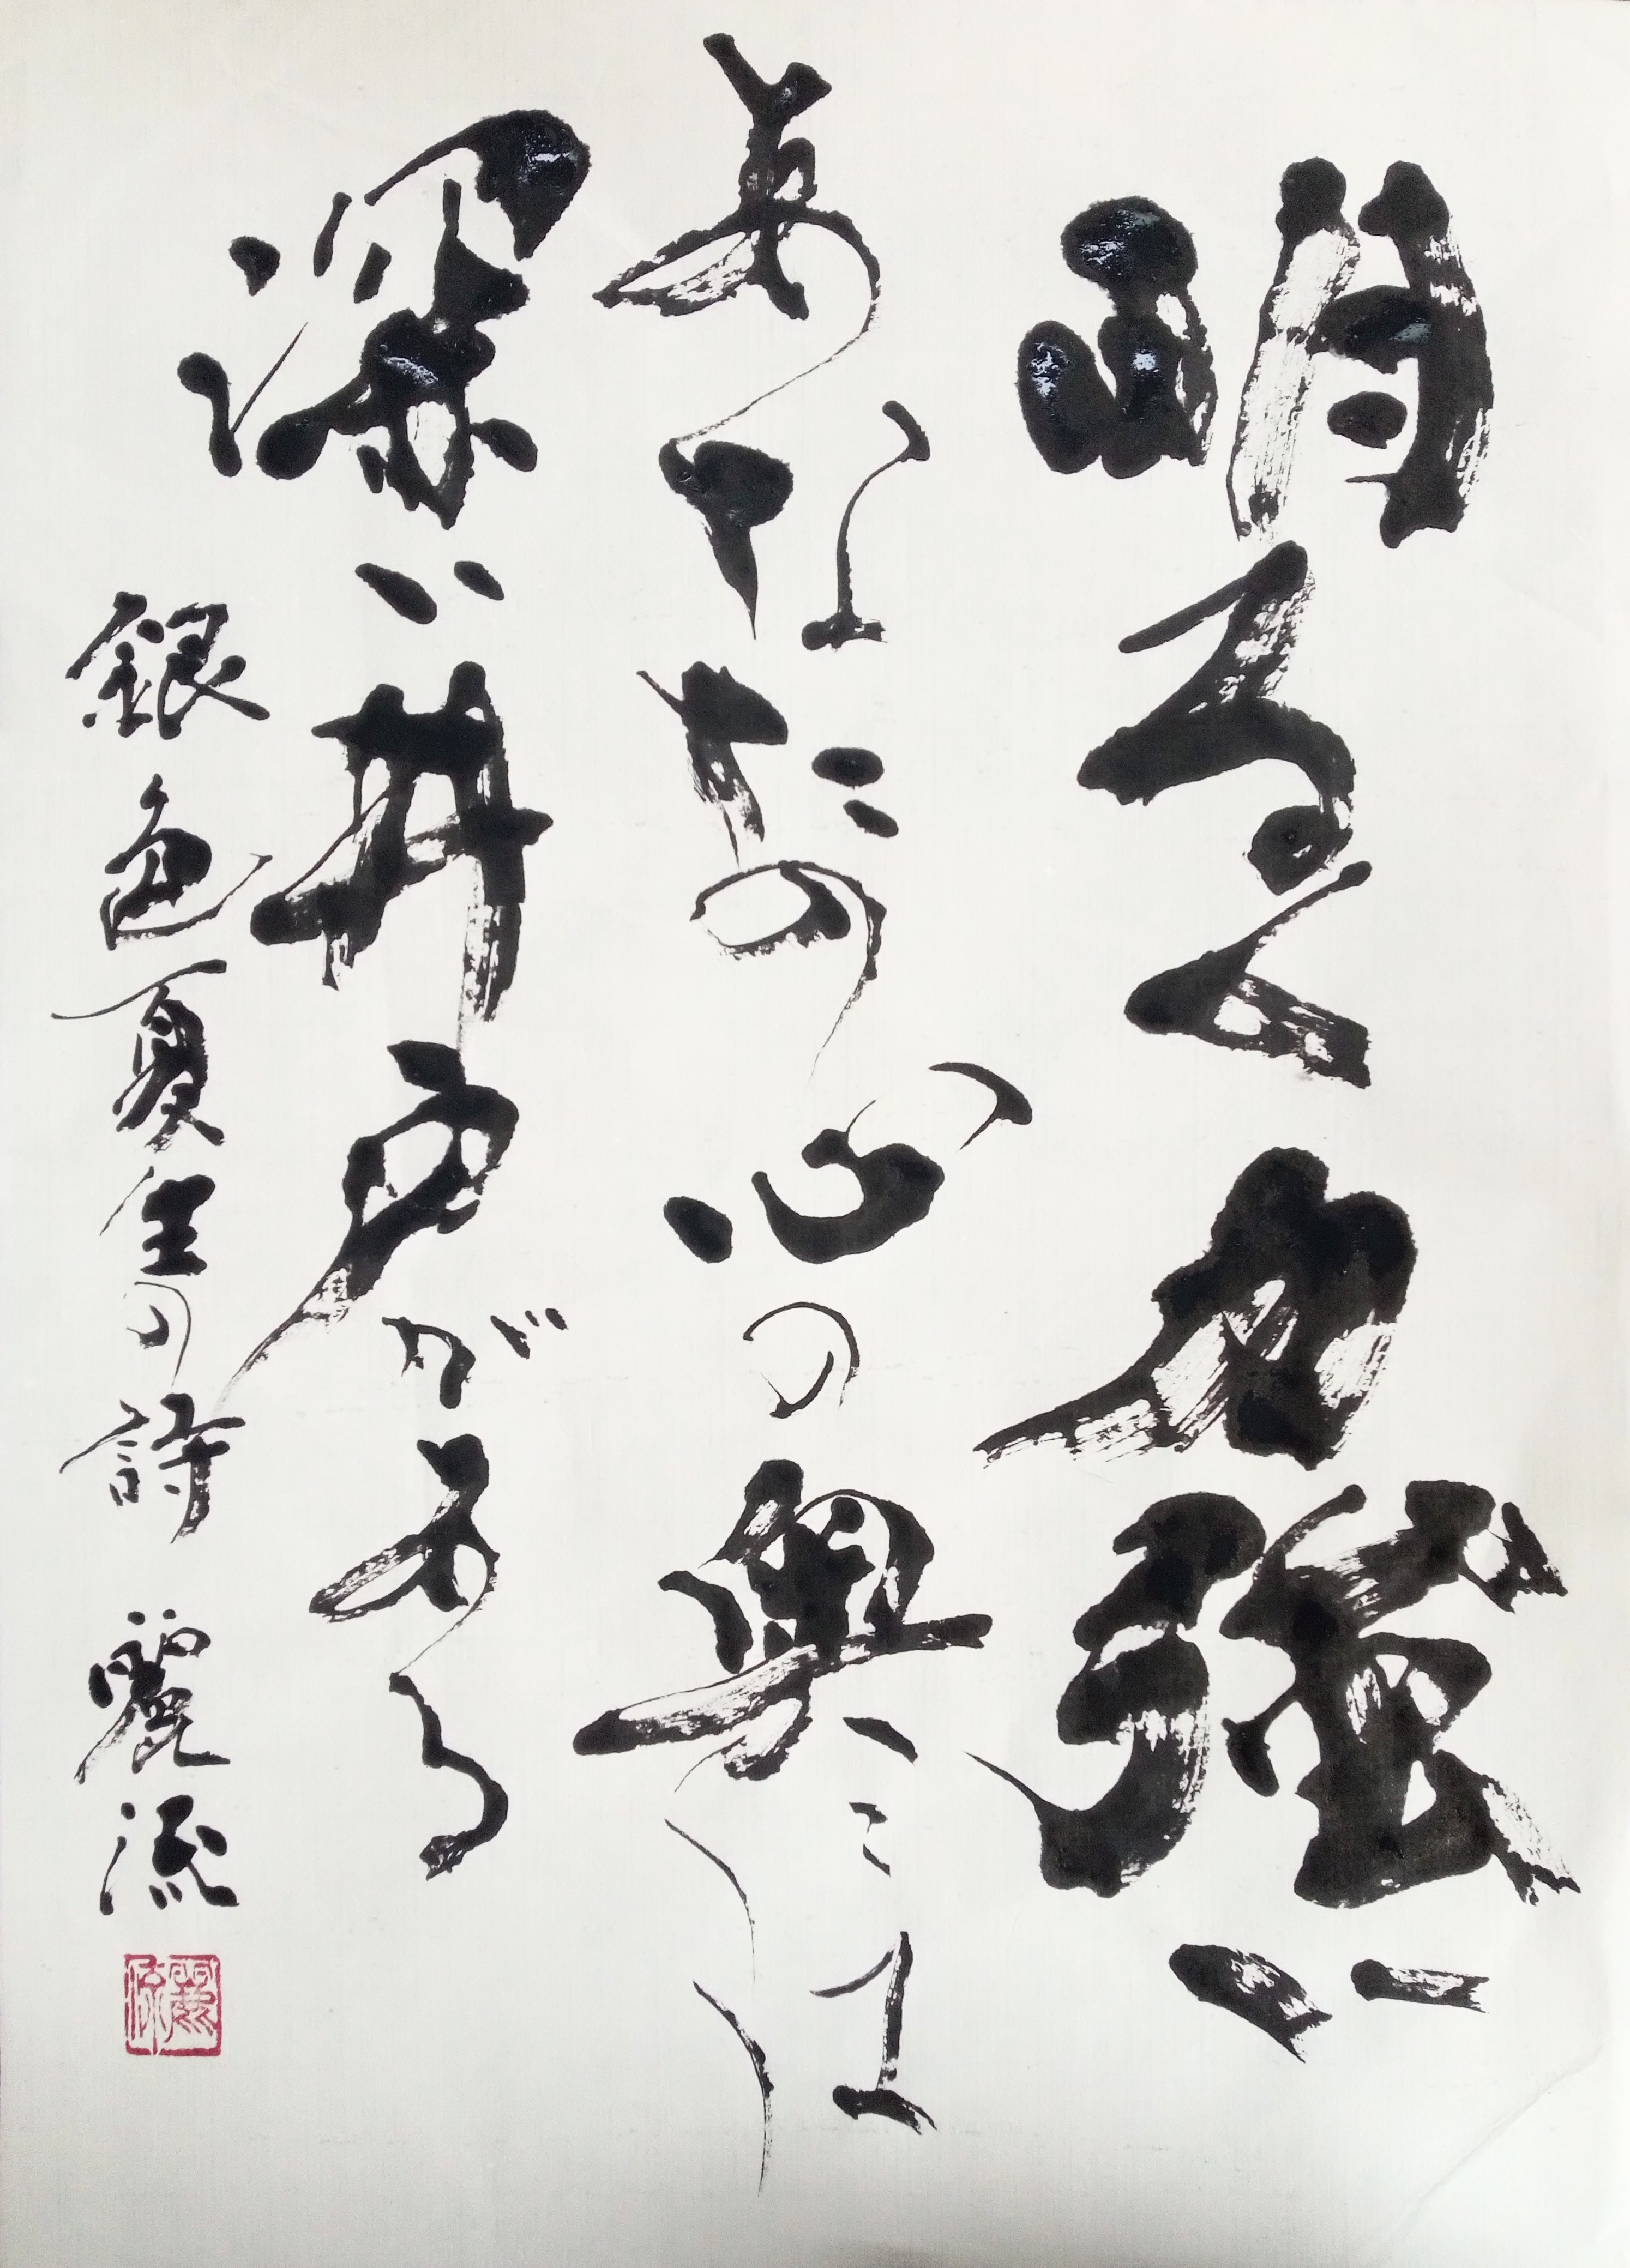 明るく力強い
あなたの心の奥には
深い井戸がある
銀色夏生の詩 麗流
麗流